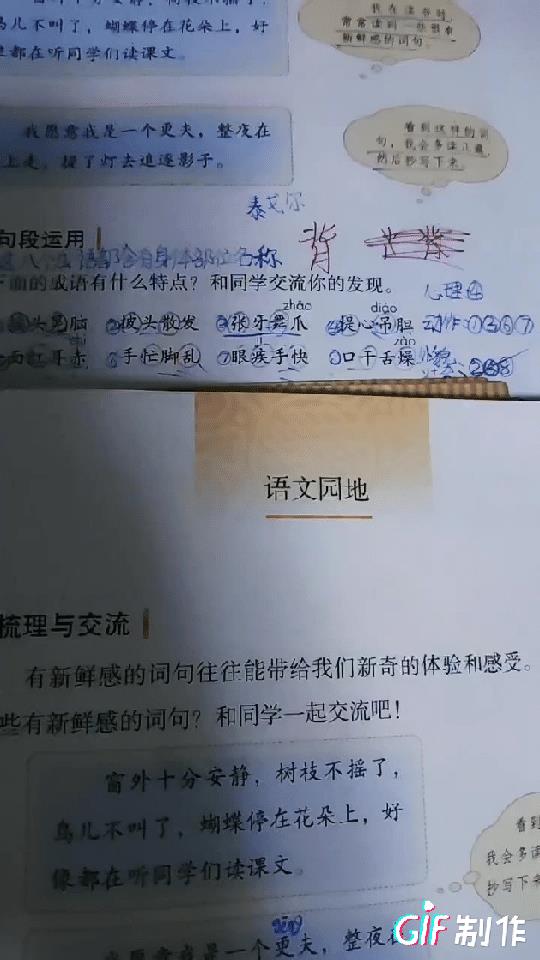 窗外十分安静，树枝不摇了，
鸟儿不叫了，蝴蝶停在花朵上，好
像都在听同学们读课文。
我在读书时
常常读到一些很有
新鲜感的词句。
我愿意我是一个更夫，整夜在
上走，提了灯去追逐影子。
看到这样的词
句，我会多读几遍，
然后抄写下来。
泰戈尔
句段运用
背
名称
下面的成语有什么特点？和同学交流你的发现。
心理④
zhǎo
diào
头 脑 ②披头散发 ③张牙舞爪 ④提心吊胆
动作：①③⑥⑦
zào
面红耳赤 ⑥手忙脚乱 ⑦眼疾手快 ⑧口干舌燥
语文园地
梳理与交流
有新鲜感的词句往往能带给我们新奇的体验和感受。
些有新鲜感的词句？和同学一起交流吧！
窗外十分安静，树枝不摇了，
鸟儿不叫了，蝴蝶停在花朵上，好
像都在听同学们读课文。
看到
我会多读
抄写下来
我愿意我是一个更夫，整夜
GIF制作